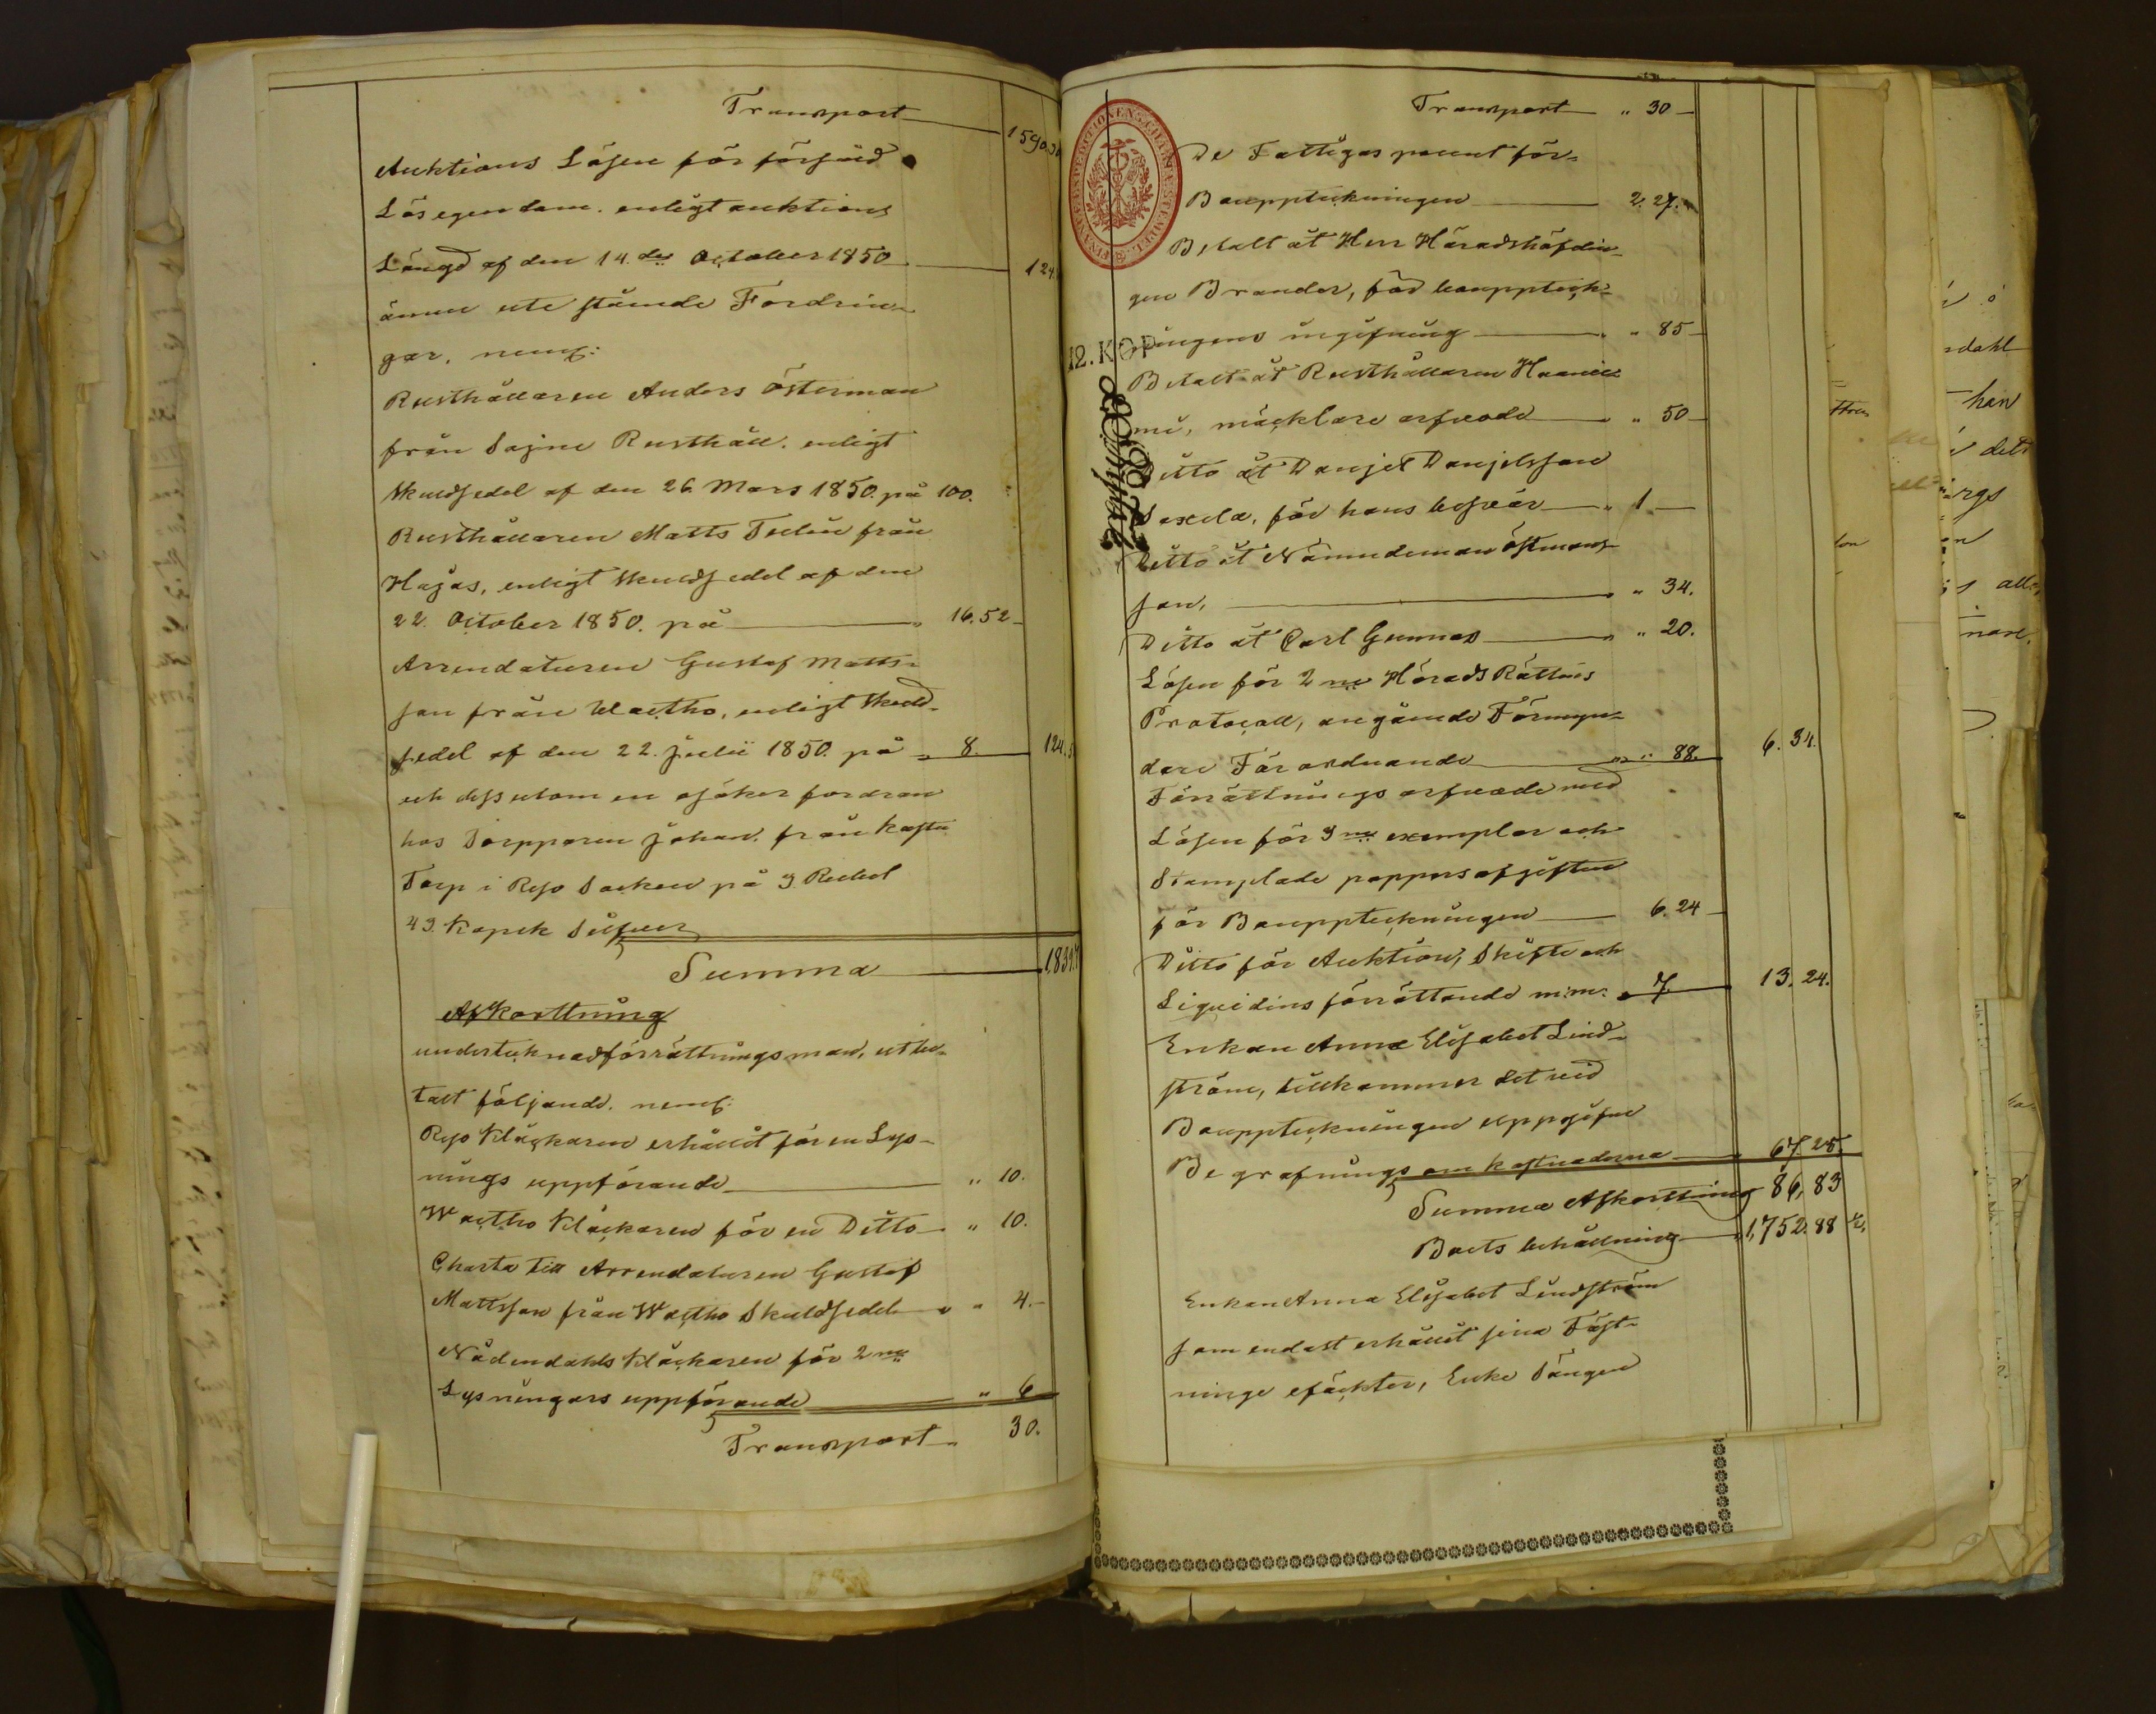 Transport 1590.
Auktions Lösen för försåld
Lösegendom. enligt auktions
Längd af den 14.de October 1850 124.
ännu ute stående Fordrin-
gar, neml:
Rusthållaren Anders Österman
från Sajne Rusthåll. enligt
Skuldsedel af den 26. Mars 1850. på 100.
Rusthållaren Matts Tulin från
Hajas, enligt Skuldsedel af den
22. October 1850. på 16.52
Arrendatoren Gustaf Matts-
son från Waetho, enligt Skuld-
sedel af den 22. Julii 1850. på " 8. 124.
och dessutom en osäker fordran
hos Torpparen Johan. från
Torp i Reso Socken på 3 Rubel
43. Kopek Silfver
Summa 1,839.
Afkorttning
undertecknad förrättningsman, utbe-
talt följande. neml:
Reso Klåckaren erhållit för en Lys-
nings uppförande " 10.
Wactho Klåckaren för en Ditto " 10.
Charta till Arrendatoren Gustaf
Mattsson från Wactho Skuldsedel " 4.
Nådendahls Klåckaren för 2ne
Lysningars uppförande " 6
Transport 30.
Transport " 30
De Fattigas procent för
Bouppteckningen 2. 27.
Betalt åt Herr Häradshöfdin-
gen Brander, för bouppteck-
ningens ingifning " 85
12. KOP
Betalt åt Rusthållaren
mi, mäcklare arfvode " 50
Ditto åt Danjel Danjelsson
Saxela, för hans besvär " 1
Ditto åt Nämndeman Östmans-
son, " 34.
Ditto åt Carl Gunnas " 20.
Lösen för 2ne Härads Rättens
Protocoll, angående Förmyn-
dare Förordnande " 88. 6. 34.
Förrättnings arfvode med
Lösen för 3ne exemplar och
Stamplade pappers afgiften
för Bouppteckningen 6. 24
Ditto för Auktion, Skifte och
Liquidins förrättande m:m: " 7. 13. 24.
Enkan Anna Elisabet Lind-
ström, tillkommer det vid
Bouppteckningen uppgifne
Begrafnings omkostnaderna 67. 25.
Summa Afkorttning 86, 83
Boets behållning 1,752. 88
Enkan Anna Elisabet Lindström
som endast erhållit sina Fäst-
ninge efäckter, Enke Sängen